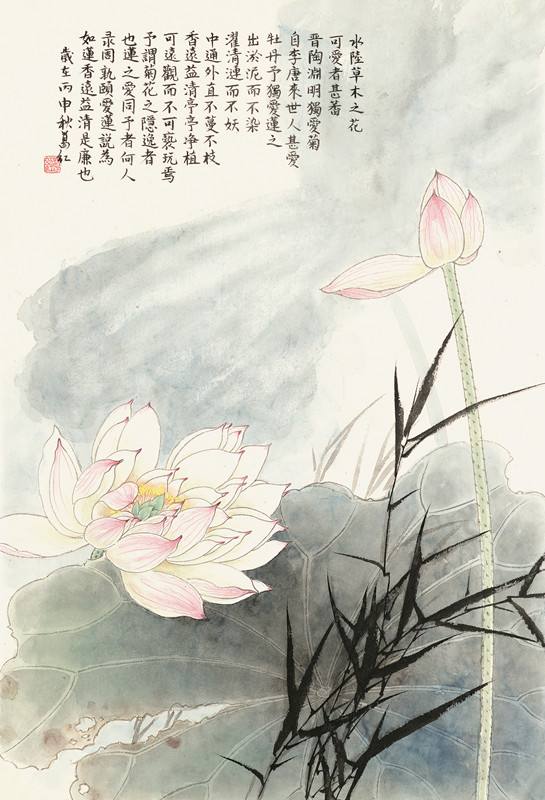 水陸草木之花
可愛者甚蕃
晋陶淵明獨愛菊
自李唐來世人甚愛
牡丹予獨愛蓮之
出淤泥而不染
濯清漣而不妖
中通外直不蔓不枝
香遠益清亭亭净植
可遠觀而不可褻玩焉
予謂菊花之隱逸者
也蓮之愛同于者何人
录周敦頤愛蓮說為
如蓮香遠益清是廉也
歲在丙申秋葛紅